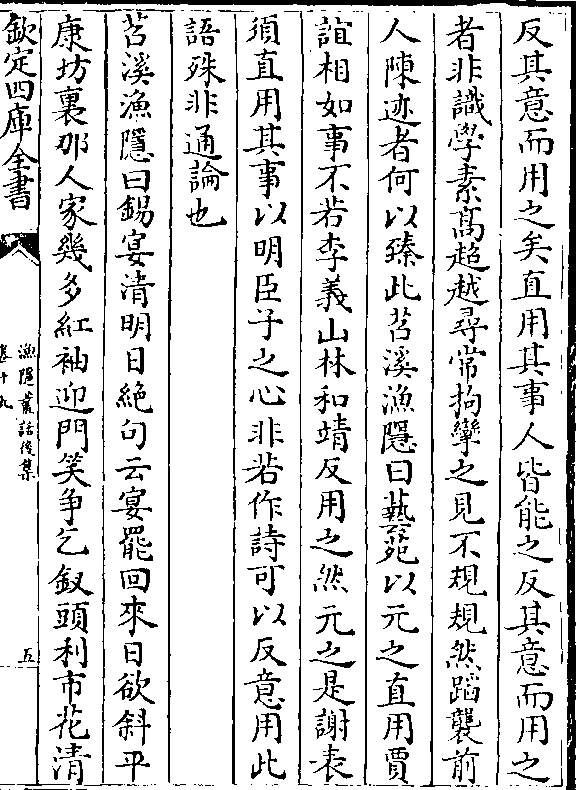 反其意而用之矣直用其事人皆能之反其意而用之
者非識學素髙超越尋常拘攣之見不規規然蹈襲前
人陳迹者何以臻此苕溪漁隱曰藝苑以元之直用賈
誼相如事不若李義山林和靖反用之然元之是謝表
須直用其事以明臣子之心非若作詩可以反意用此
語殊非通論也
苕溪漁隱曰錫宴清明日絶句云宴罷回來日欲斜平
康坊裏那人家幾多紅袖迎門笑争乞釵頭利市花清
欽定四庫全書
漁隱叢話後集
卷十九
五